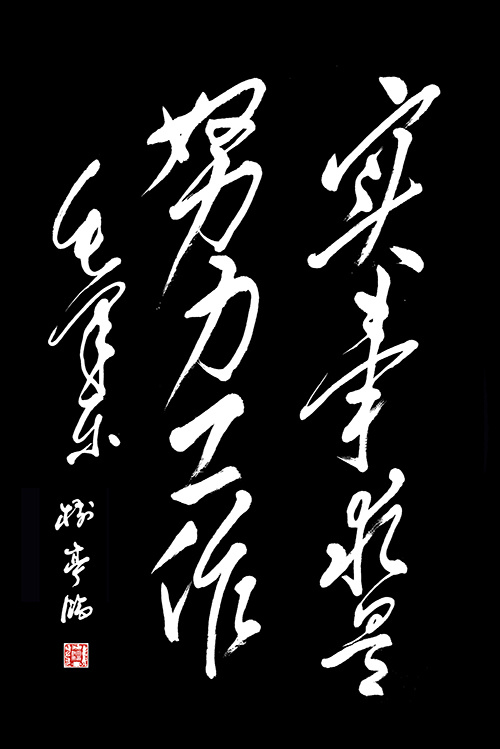 实事求是
努力工作
毛泽东
树亭临